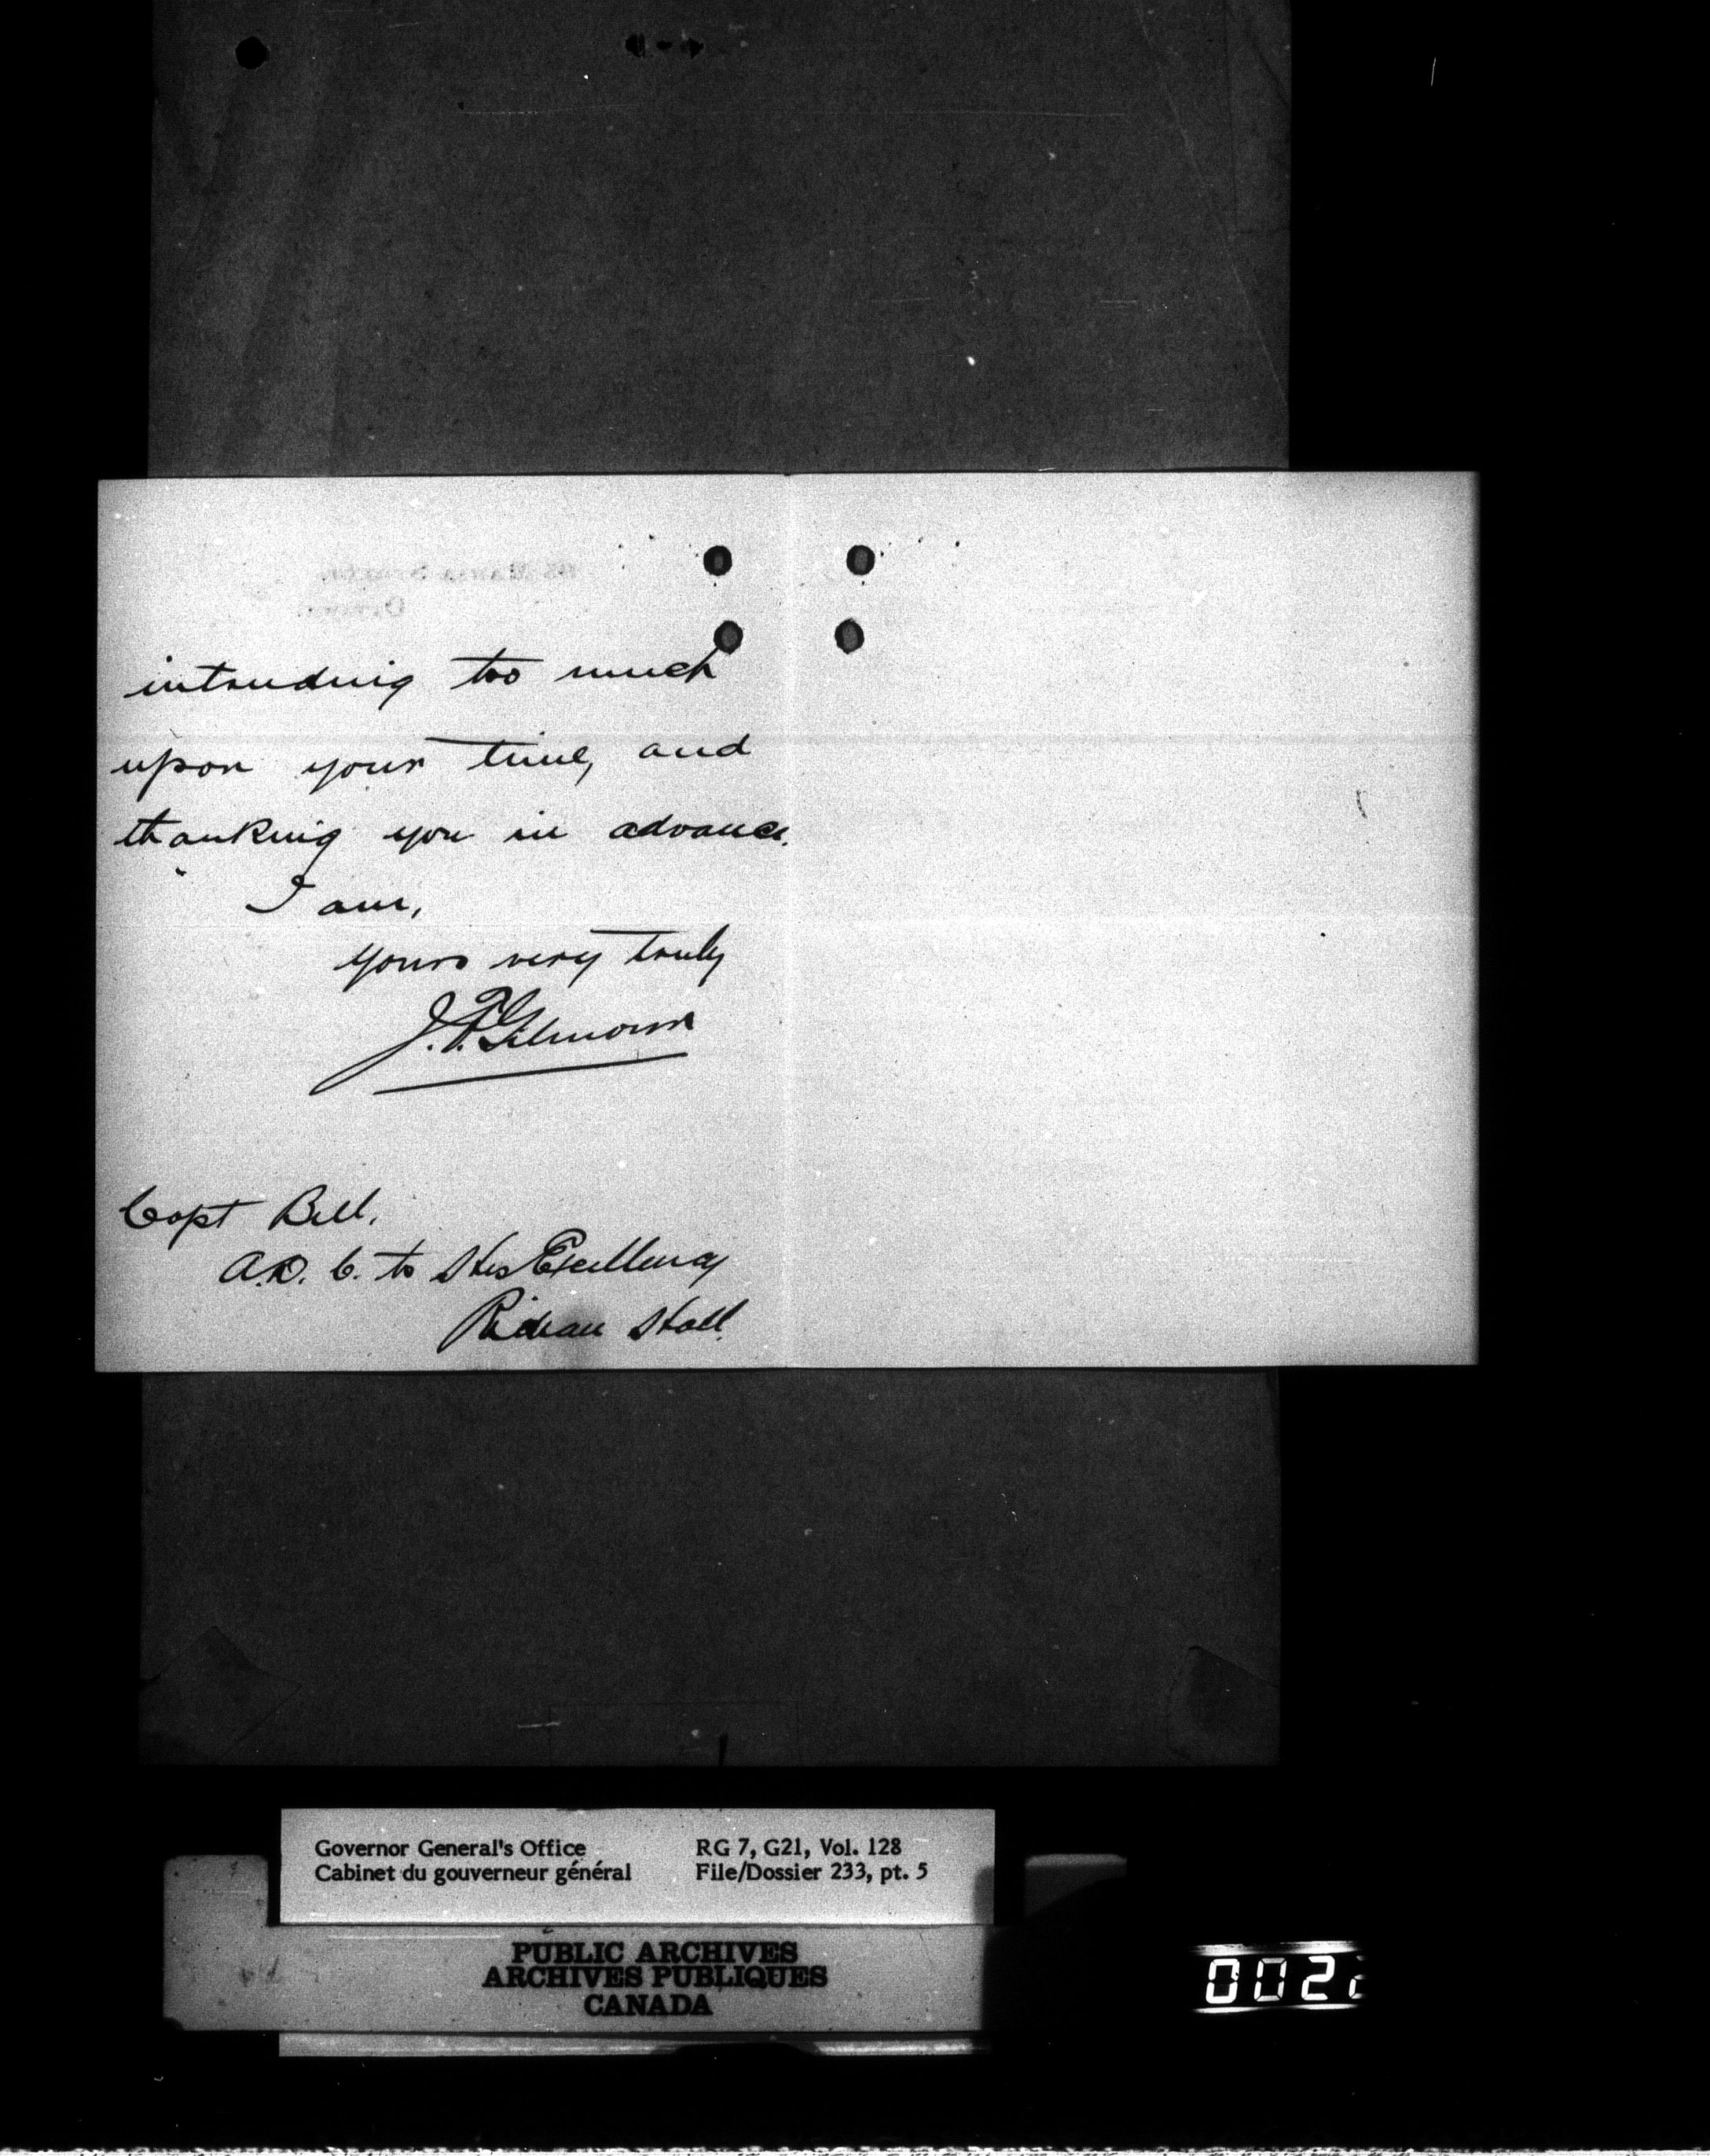 intruding too much
upon your time, and
thanking you in advance.
I am,
yours very truly
J. P. Gilmour
Capt Bell.
A.D.C. to His Excellency
Rideau Hall.
Governor General's Office
Cabinet du gouverneur général
RG 7, G21, Vol. 128
File/Dossier 233, pt. 5
PUBLIC ARCHIVES
ARCHIVES PUBLIQUES
CANADA
002